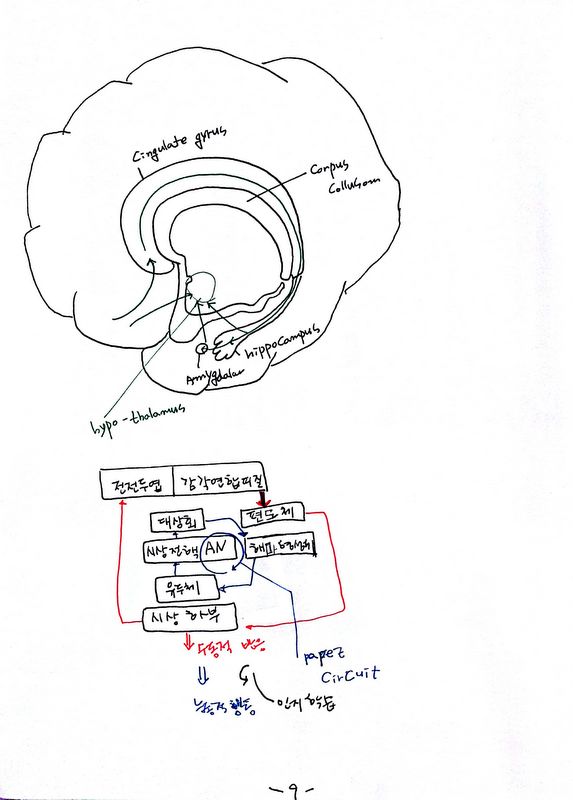 Cingulate gyrus
Corpus
Collusom
hippocampus
Amygdalar
hypo-thalamus
전전두엽 감각연합피질
대상회 편도체
시상전핵 AN 해마형성체
유두체
시상 하부
수동적 반응
papez
circuit
능동적 행동 인지 학습
- 9 -